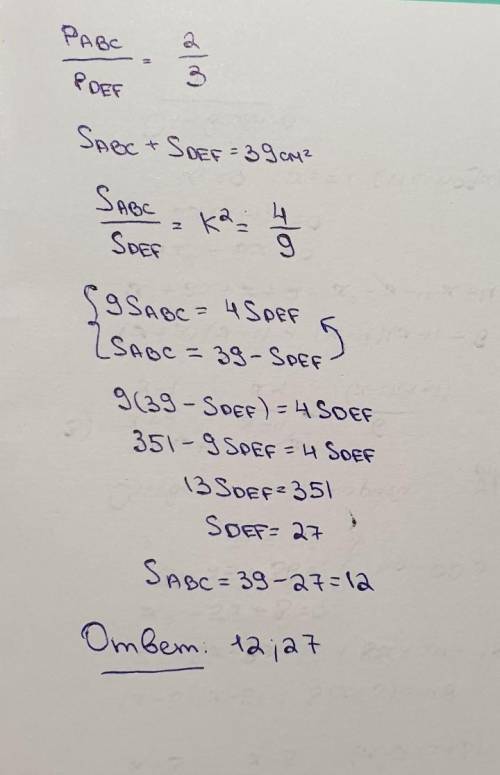 P ABC / P DEF = 2/3
S ABC + S DEF = 39 см²
S ABC / S DEF = K² = 4/9
{ 9 S ABC = 4 S DEF
S ABC = 39 - S DEF
9(39 - S DEF) = 4 S DEF
351 - 9 S DEF = 4 S DEF
13 S DEF = 351
S DEF = 27
S ABC = 39 - 27 = 12
Ответ: 12; 27